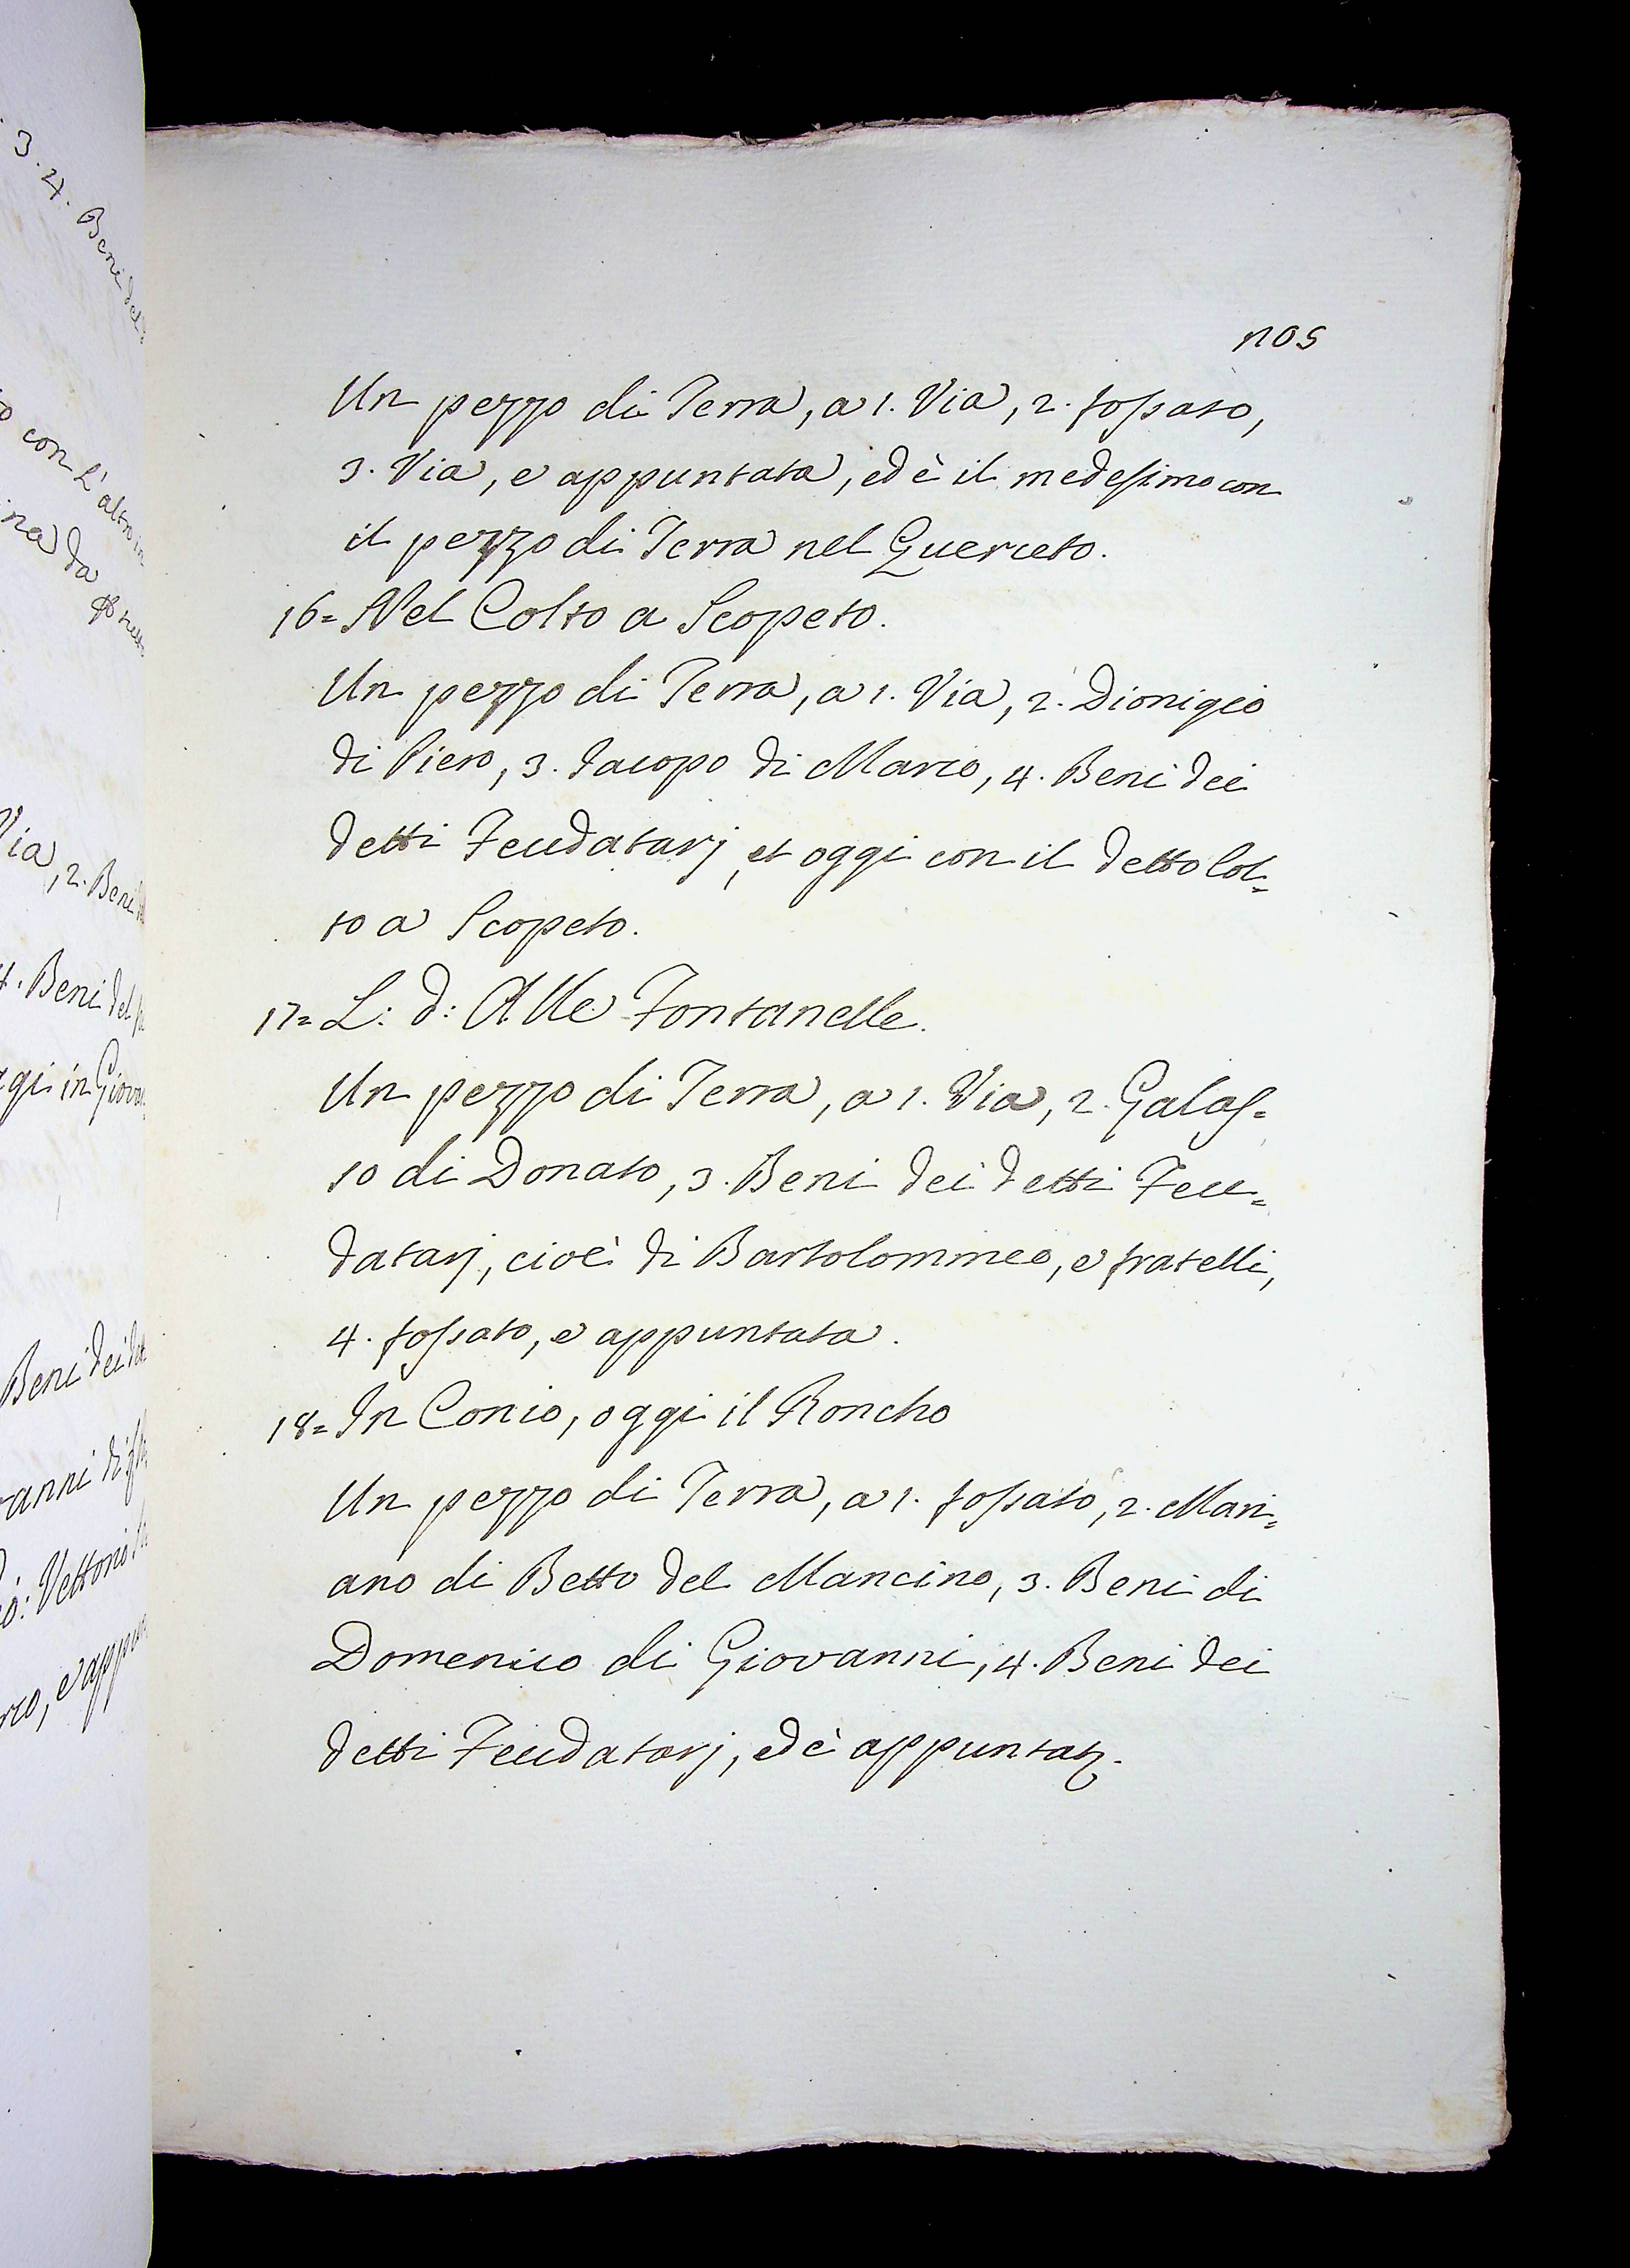 3. 4. Beni del
con l'altro in
na da
Via, 2. Beni
4. Beni del
gi in Giova
Beni dei det
anni di
: Vettorio
rco, e appun
nos
Un pezzo di Terra, a 1. Via, 2. fossato,
3. Via, e appuntata, ed è il medesimo con
il pezzo di Terra nel Querceto.
16= Nel Colto a Scopeto.
Un pezzo di Terra, a 1. Via, 2. Dionigio
di Piero, 3. Jacopo di Marco, 4. Beni dei
detti Feudatarj, et oggi con il detto Col=
to a Scopeto.
17= L: d: Alle Fontanelle.
Un pezzo di Terra, a 1. Via, 2. Galas=
so di Donato, 3. Beni dei detti Feu=
datarj, cioè di Bartolommeo, e fratelli,
4. fossato, e appuntata.
18= In Conio, oggi il Roncho
Un pezzo di Terra, a 1. fossato, 2. Mari=
ano di Betto del Mancino, 3. Beni di
Domenico di Giovanni, 4. Beni dei
detti Feudatarj, ed è appuntat.